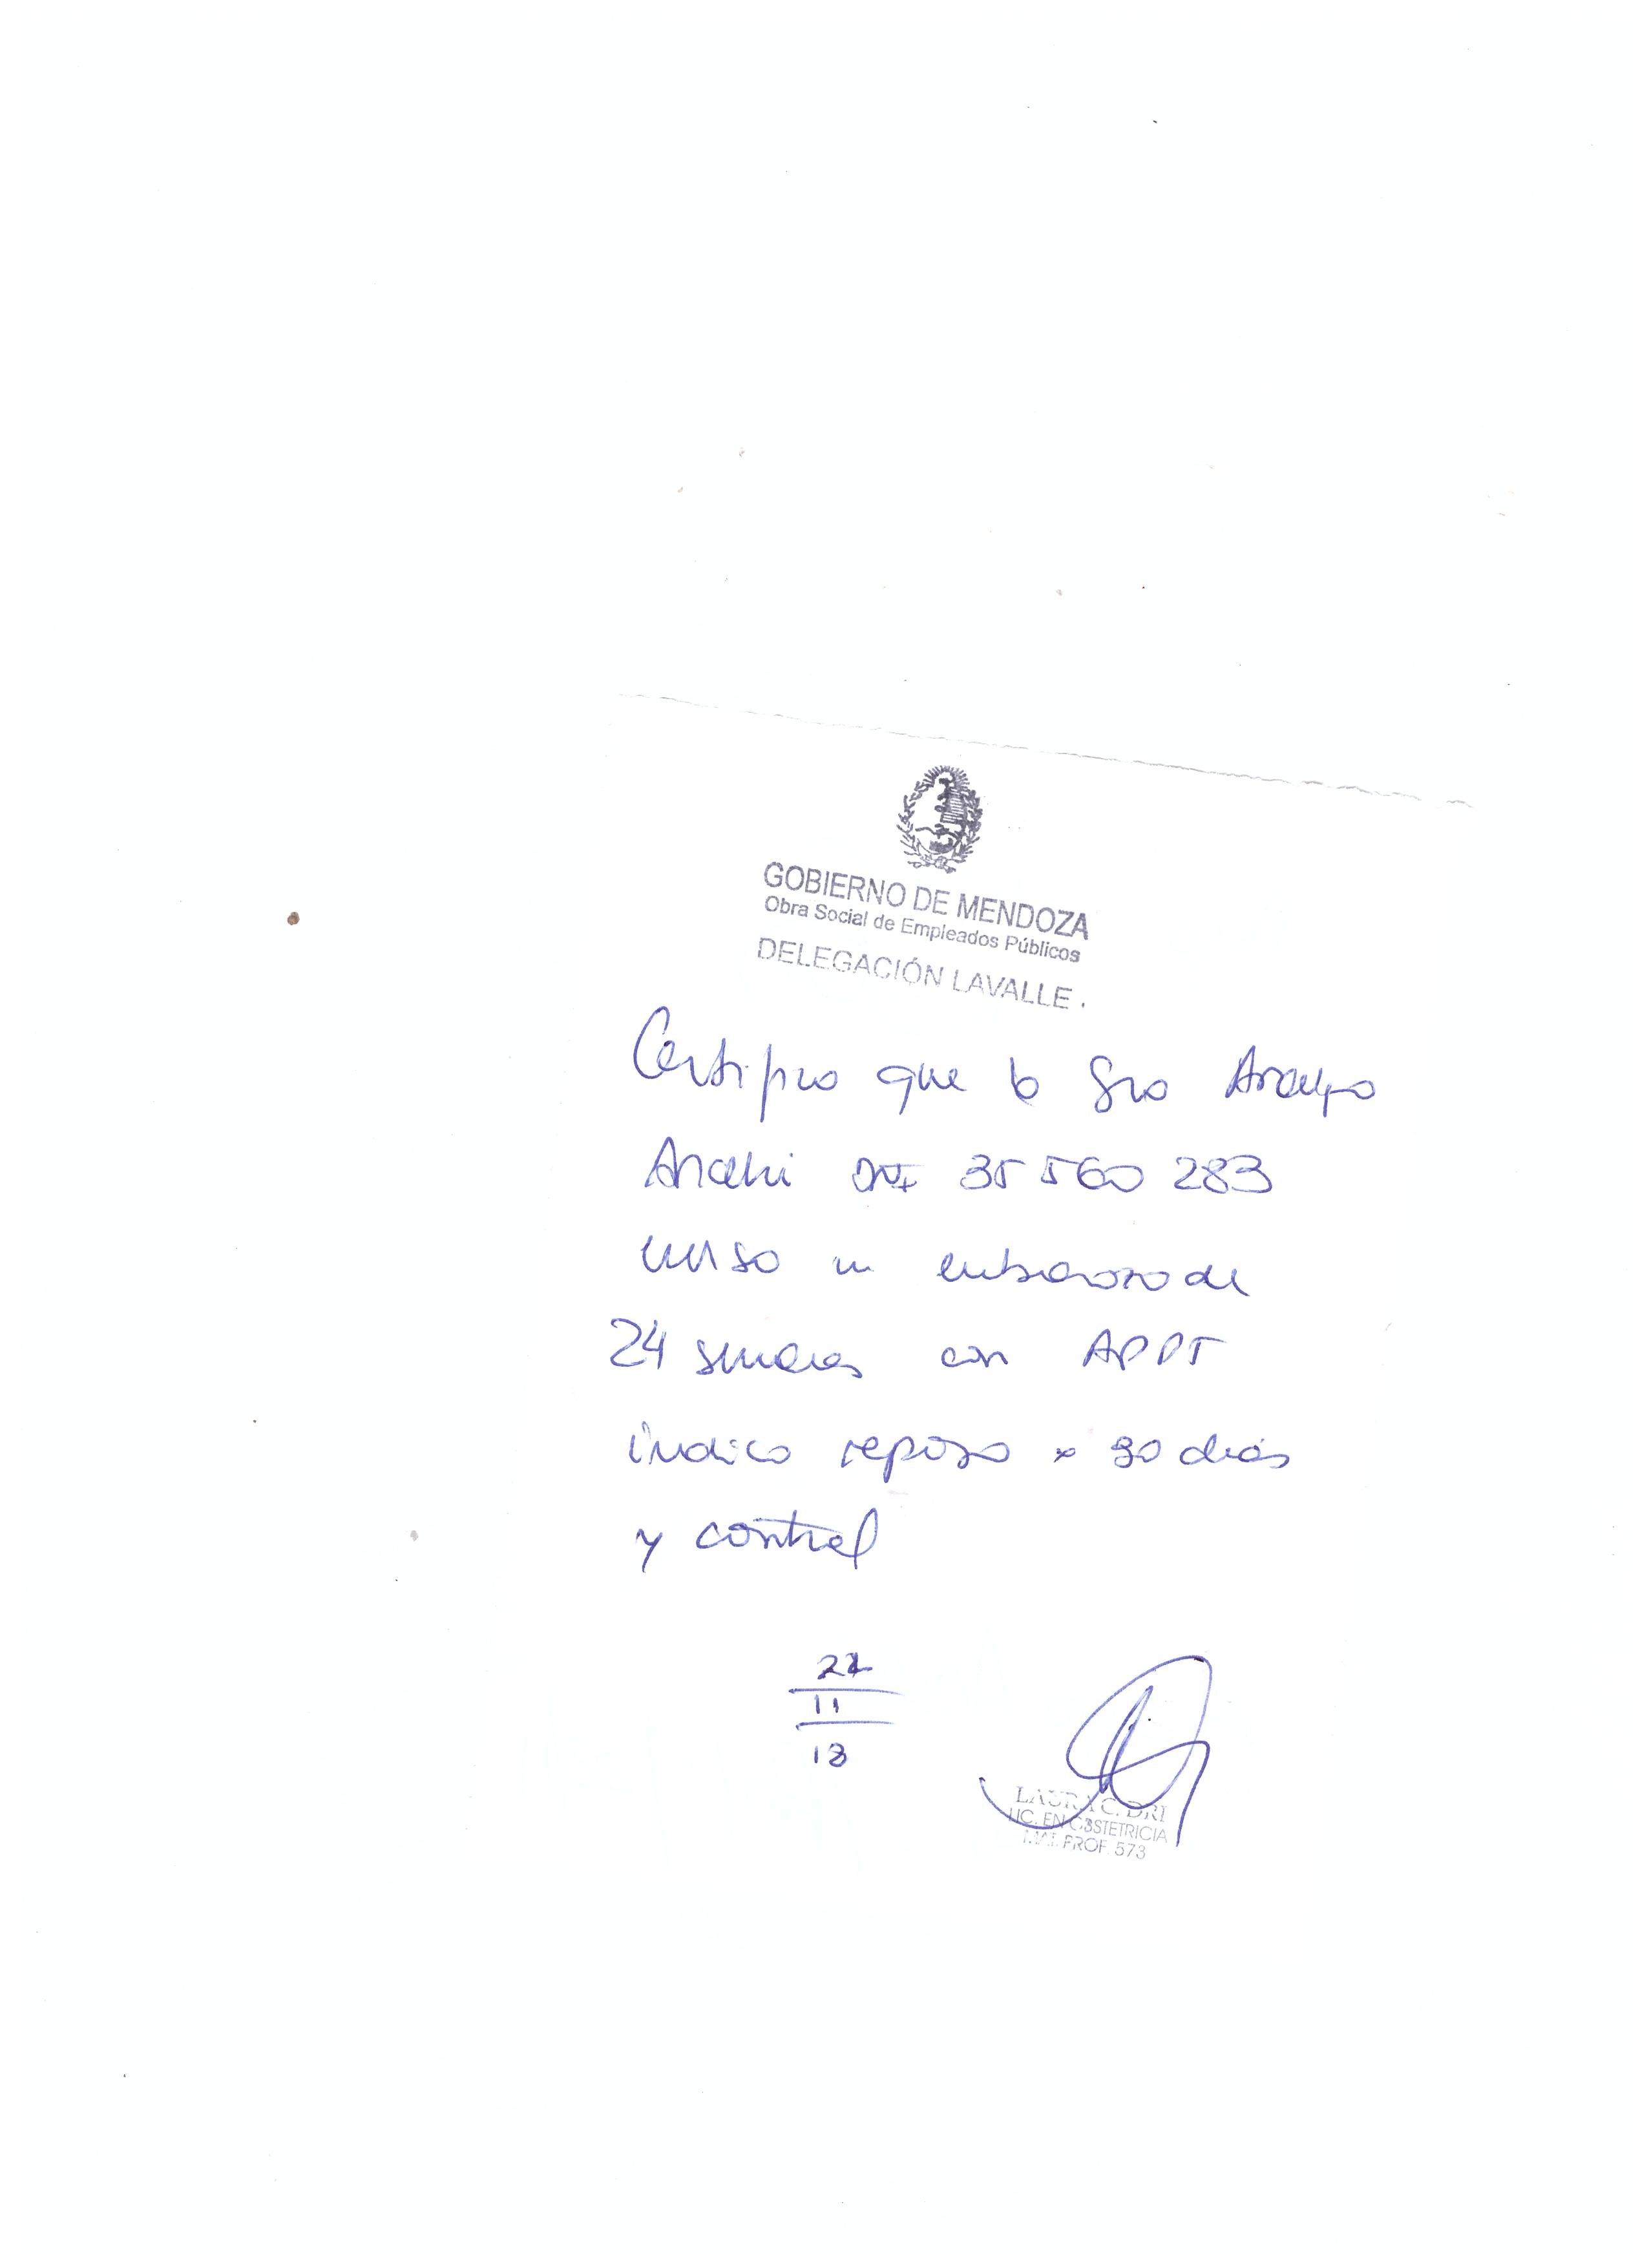 GOBIERNO DE MENDOZA
Obra Social de Empleados Públicos
DELEGACIÓN LAVALLE.
Certifico que la Sra Araujo
Anahi DNI 35 560 283
cursa un embarazo de
24 semanas con APPT
indico reposo x 30 dias
y control
11
18
LAURA C. DRI
LIC. EN OBSTETRICIA
MAT. PROF. 573